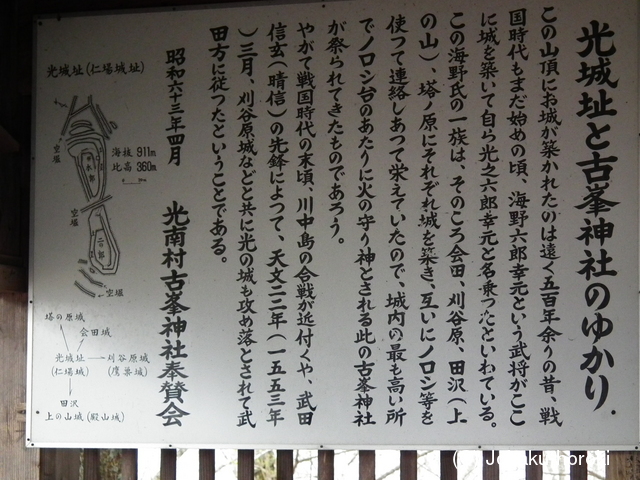 光城址と古峯神社のゆかり
この山頂にお城が築かれたのは遠く五百年余りの昔、戦
国時代もまだ始めの頃、海野六郎幸元という武将がここ
に城を築いて自ら光之六郎幸元と名乗つたといわれている。
この海野氏の一族は、そのころ会田、刈谷原、田沢（上
の山）、塔ノ原にそれぞれ城を築き、互いにノロシ等を
使つて連絡しあつて栄えていたので、城内の最も高い所
でノロシ台のあたりに火の守り神とされる此の古峯神社
が祭られてきたものであろう。
やがて戦国時代の末頃、川中島の合戦が近付くや、武田
信玄（晴信）の先鋒によつて、天文二二年（一五五三年
）三月、刈谷原城などと共に光の城も攻め落とされて武
田方に従つたということである。
昭和六十三年四月
光南村古峯神社奉賛会
光城址(仁場城址)
空堀
海抜 911m
比高 360m
本郭
空堀
二の郭
空堀
塔の原城
会田城
光城址
(仁場城)
刈谷原城
(鷹巣城)
田沢
上の山城(殿山城)